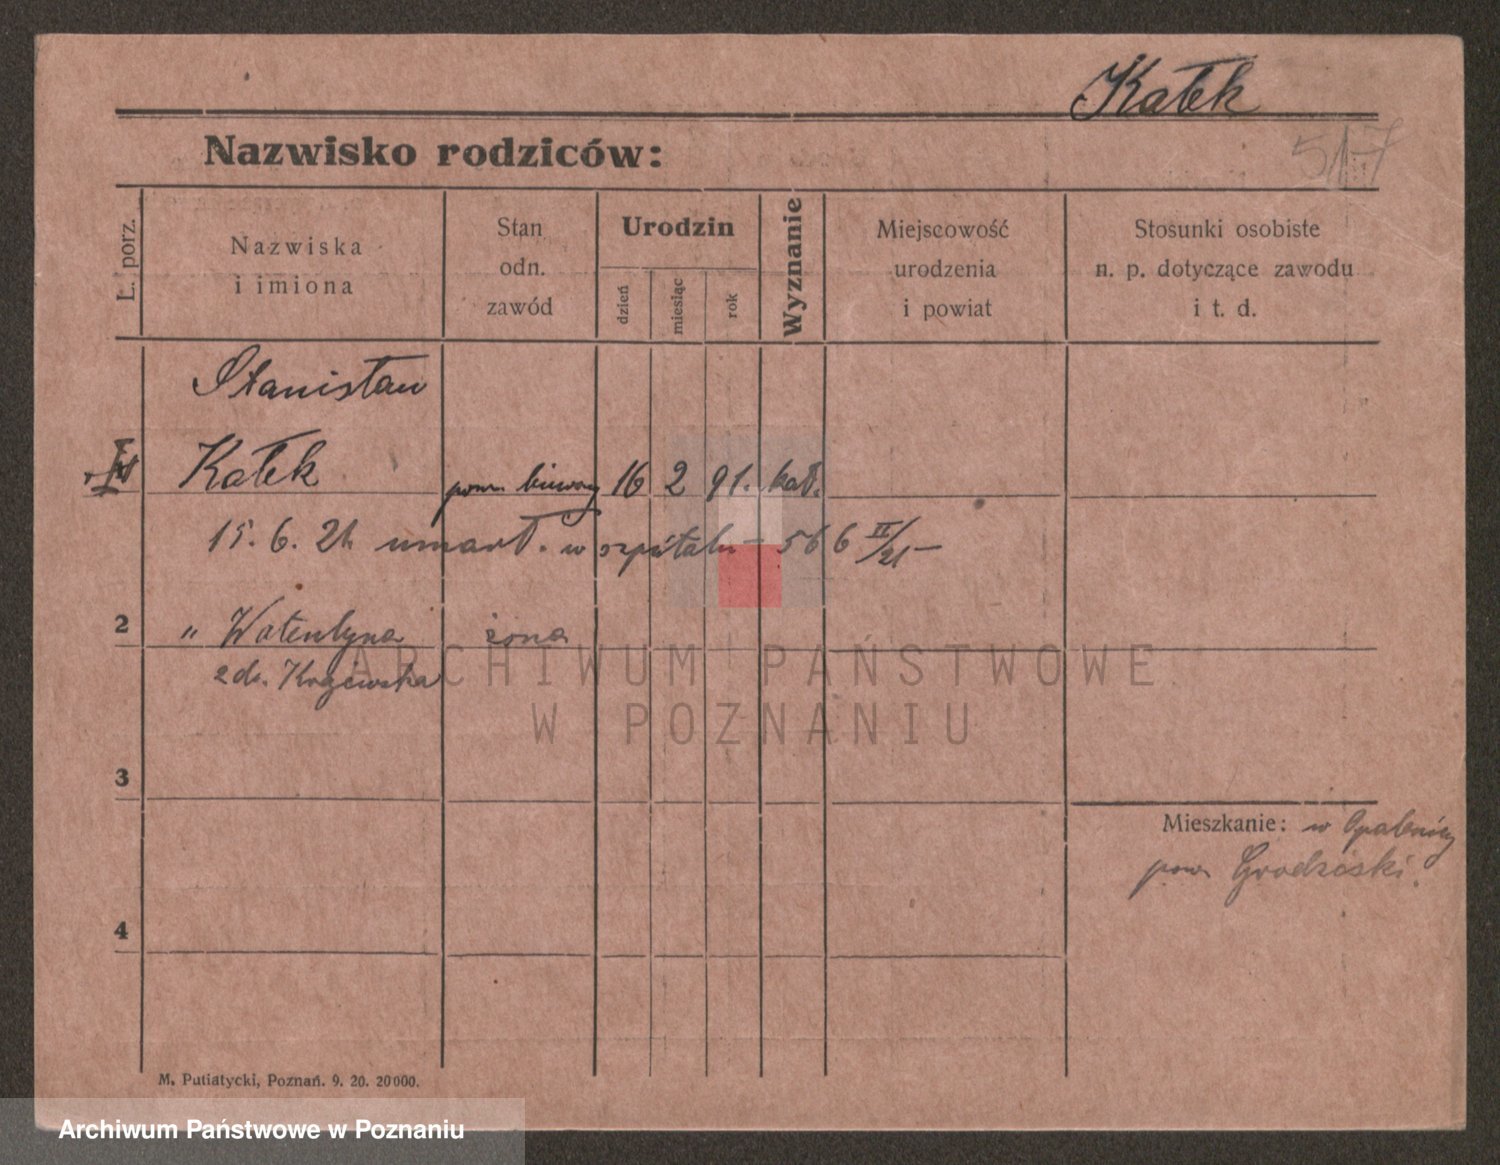 Kałek
517
Nazwisko rodziców:
L. porz.
Nazwiska
i imiona
Stan
odn.
zawód
Urodzin
dzień
miesiąc
rok
Wyznanie
Miejscowość
urodzenia
i powiat
Stosunki osobiste
n. p. dotyczące zawodu
i t. d.
Stanisław
Kałek 16 2 91. kat.
15. 6. 21 umarł. w szpitalu – 566 II/21 –
2 " Walentyna żona
zd. Krajewska
3
Mieszkanie: w Opalenicy
pow Grodziski.
4
M. Putiatycki, Poznań. 9. 20. 20000.
ARCHIWUM PAŃSTWOWE
W POZNANIU
Archiwum Państwowe w Poznaniu